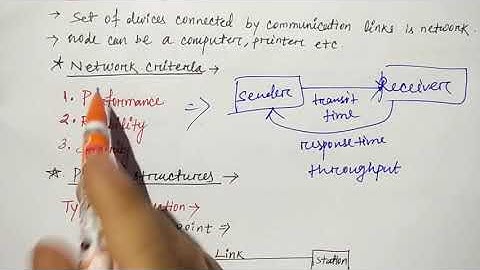 → Set of devices connected by communication links is network.
→ node can be a computer, printers etc
* Network criteria →
1. Performance
2.
3.
⇒
Sender
Receiver
transit
time
response time
throughput
* structures →
→
→
Link
station